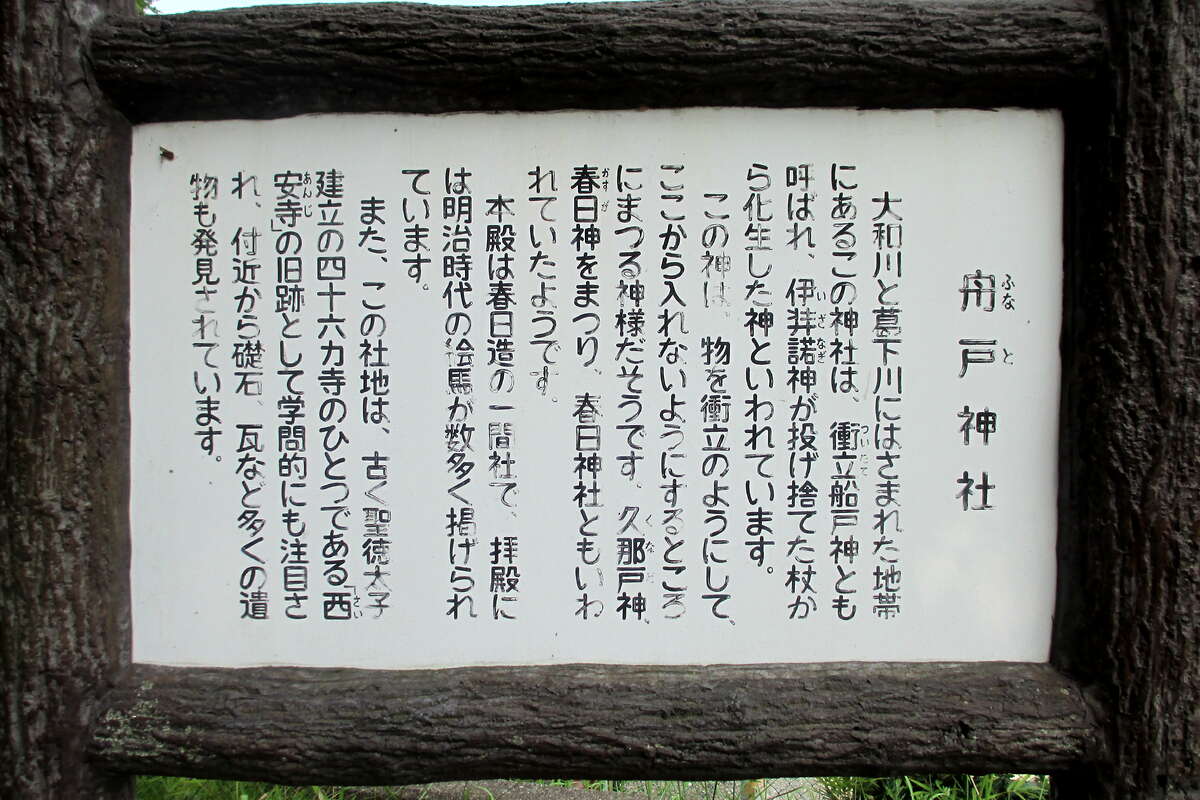 舟戸神社
大和川と葛下川にはさまれた地帯
にあるこの神社は、衝立船戸神とも
呼ばれ、伊弉諾神が投げ捨てた杖か
ら化生した神といわれています。
この神は、物を衝立のようにして、
ここから入れないようにするところ
にまつる神様だそうです。久那戸神、
春日神をまつり、春日神社ともいわ
れていたようです。
本殿は春日造の一間社で、拝殿に
は明治時代の絵馬が数多く掲げられ
ています。
また、この社地は、古く聖徳太子
建立の四十六カ寺のひとつである「西
安寺」の旧跡として学問的にも注目さ
れ、付近から礎石、瓦など多くの遺
物も発見されています。